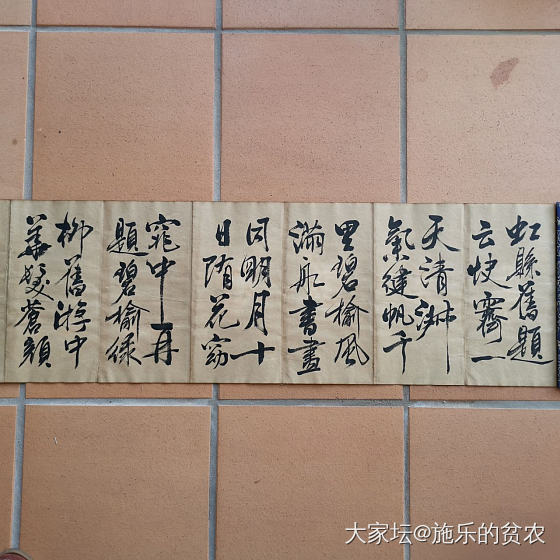 虹縣舊題
云快霽一
天清淑
氣健帆千
里碧榆風
滿舡書畫
同明月十
日隋花窈
窕中再
題碧榆綠
柳舊游中
華髮蒼顏
大家坛@施乐的贫农